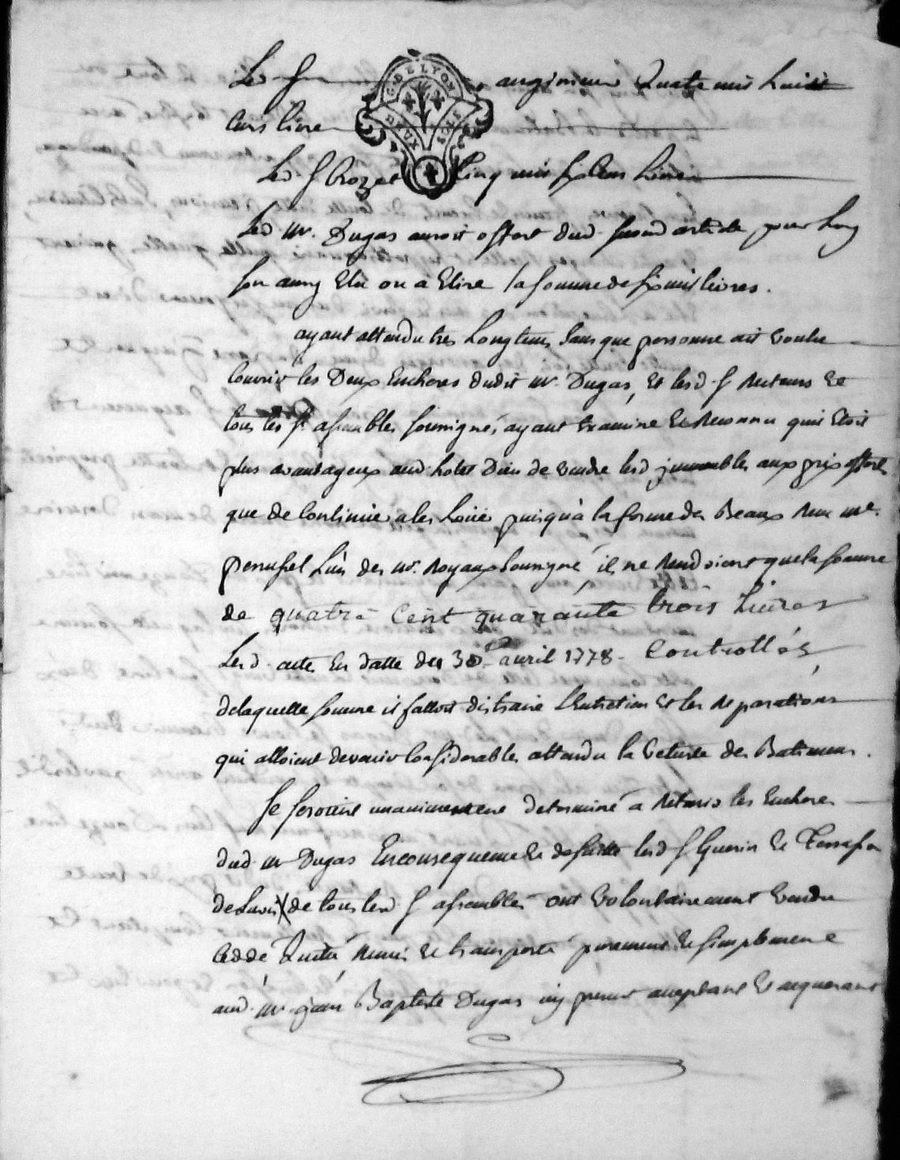 Led S angenieur Quatre mil huict
cens livre
G. DE LYON
DEUX SOLS
Led S Crozet Cinq mil six Cens Livres
Led mr. Dugas auroit offert dud second article pour Luy
son amy Elu ou a Elire la somme de six mil livres.
ayant attendu tres Longtems sans que personne ait voulu
Couvrir les Deux Encheres dudit mr. Dugas, et lesd S Recteurs Et
tous les Srs assemblés soussignés, ayant Examiné et Reconnu quil Etoit
plus avantageux aud hotel Dieu de vendre lesd immeubles aux prix offert
que de Continuer a les Louer puisqu'a la forme des Beaux Reçu me.
perussel L'un des Nres. Royaux Soussigné, il ne Rendoient que la somme
de quatre Cent quarante trois Livres
Lesd. acte En datte des 30 avril 1778. Controllés
de laquelle somme il falloit distraire L'Entretien et les Reparations
qui alloient devenir Considerable attendu la Vetusté des Batimens.
Se seroient unanimement determiné a Retenir les Enchere
dud mr Dugas En consequeme lesd S Guerin et Terrasson
de Lavis de tous lesd S assemblés ont Volontairement vendu
Ceddé Quitté Remis et transporté purement et simplement
aud. mr jean Baptiste Dugas icy present acceptant et acquerant